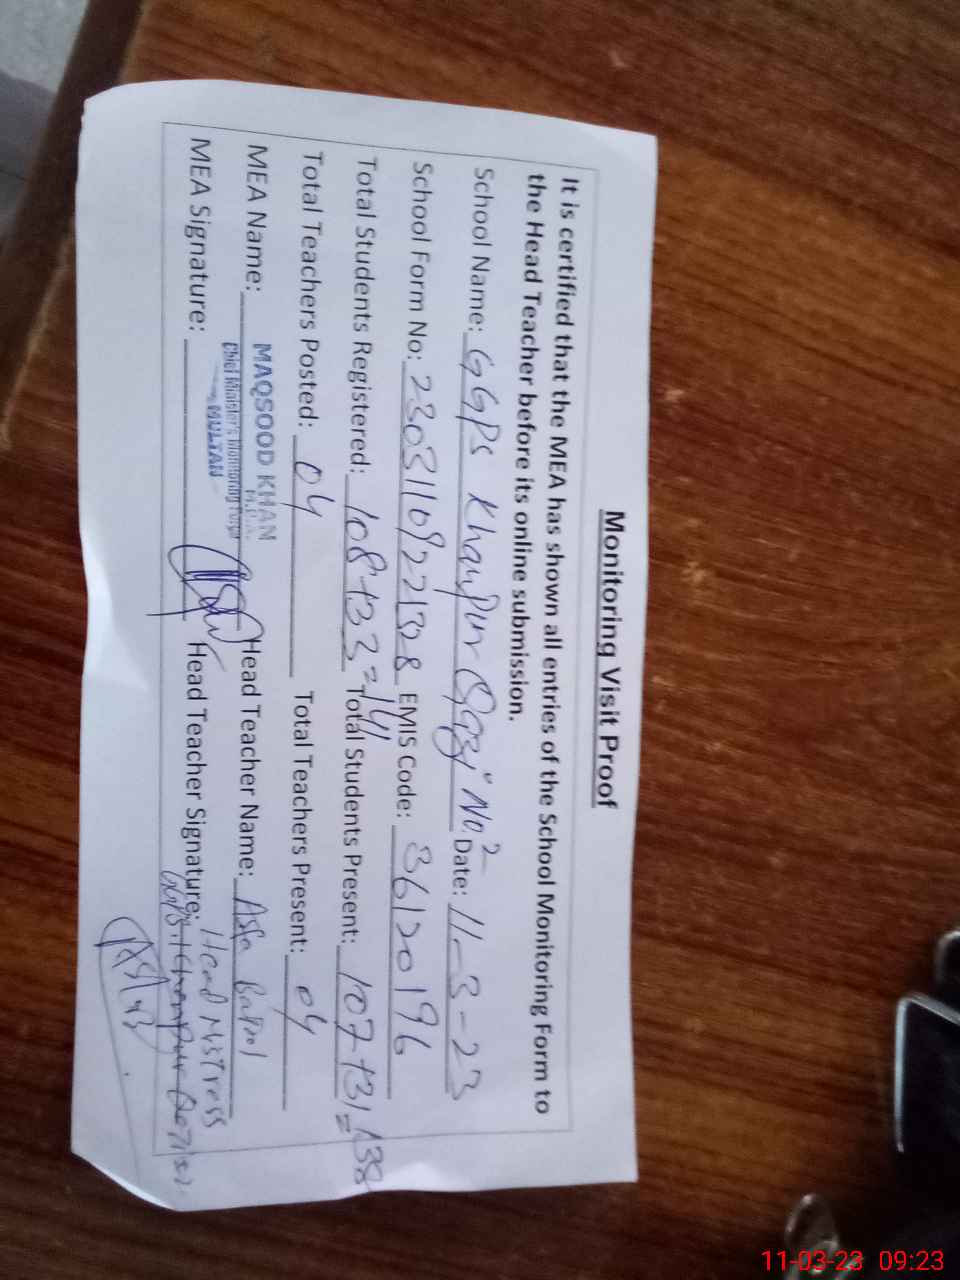 Monitoring Visit Proof
It is certified that the MEA has shown all entries of the School Monitoring Form to
the Head Teacher before its online submission.
School Name: GGPS Khanpur Qazi No.2 Date: 11-3-23
School Form No: EMIS Code: 36120196
Total Students Registered: 108+33=141 Total Students Present: 107+31=138
Total Teachers Posted: 04 Total Teachers Present: 04
MEA Name: MAQSOOD KHAN Head Teacher Name: Asfa Batol
M.E.A.
Chief Minister's Monitoring Force
MULTAN
MEA Signature: Head Teacher Signature: Head Mistress
11-03-23 09:23